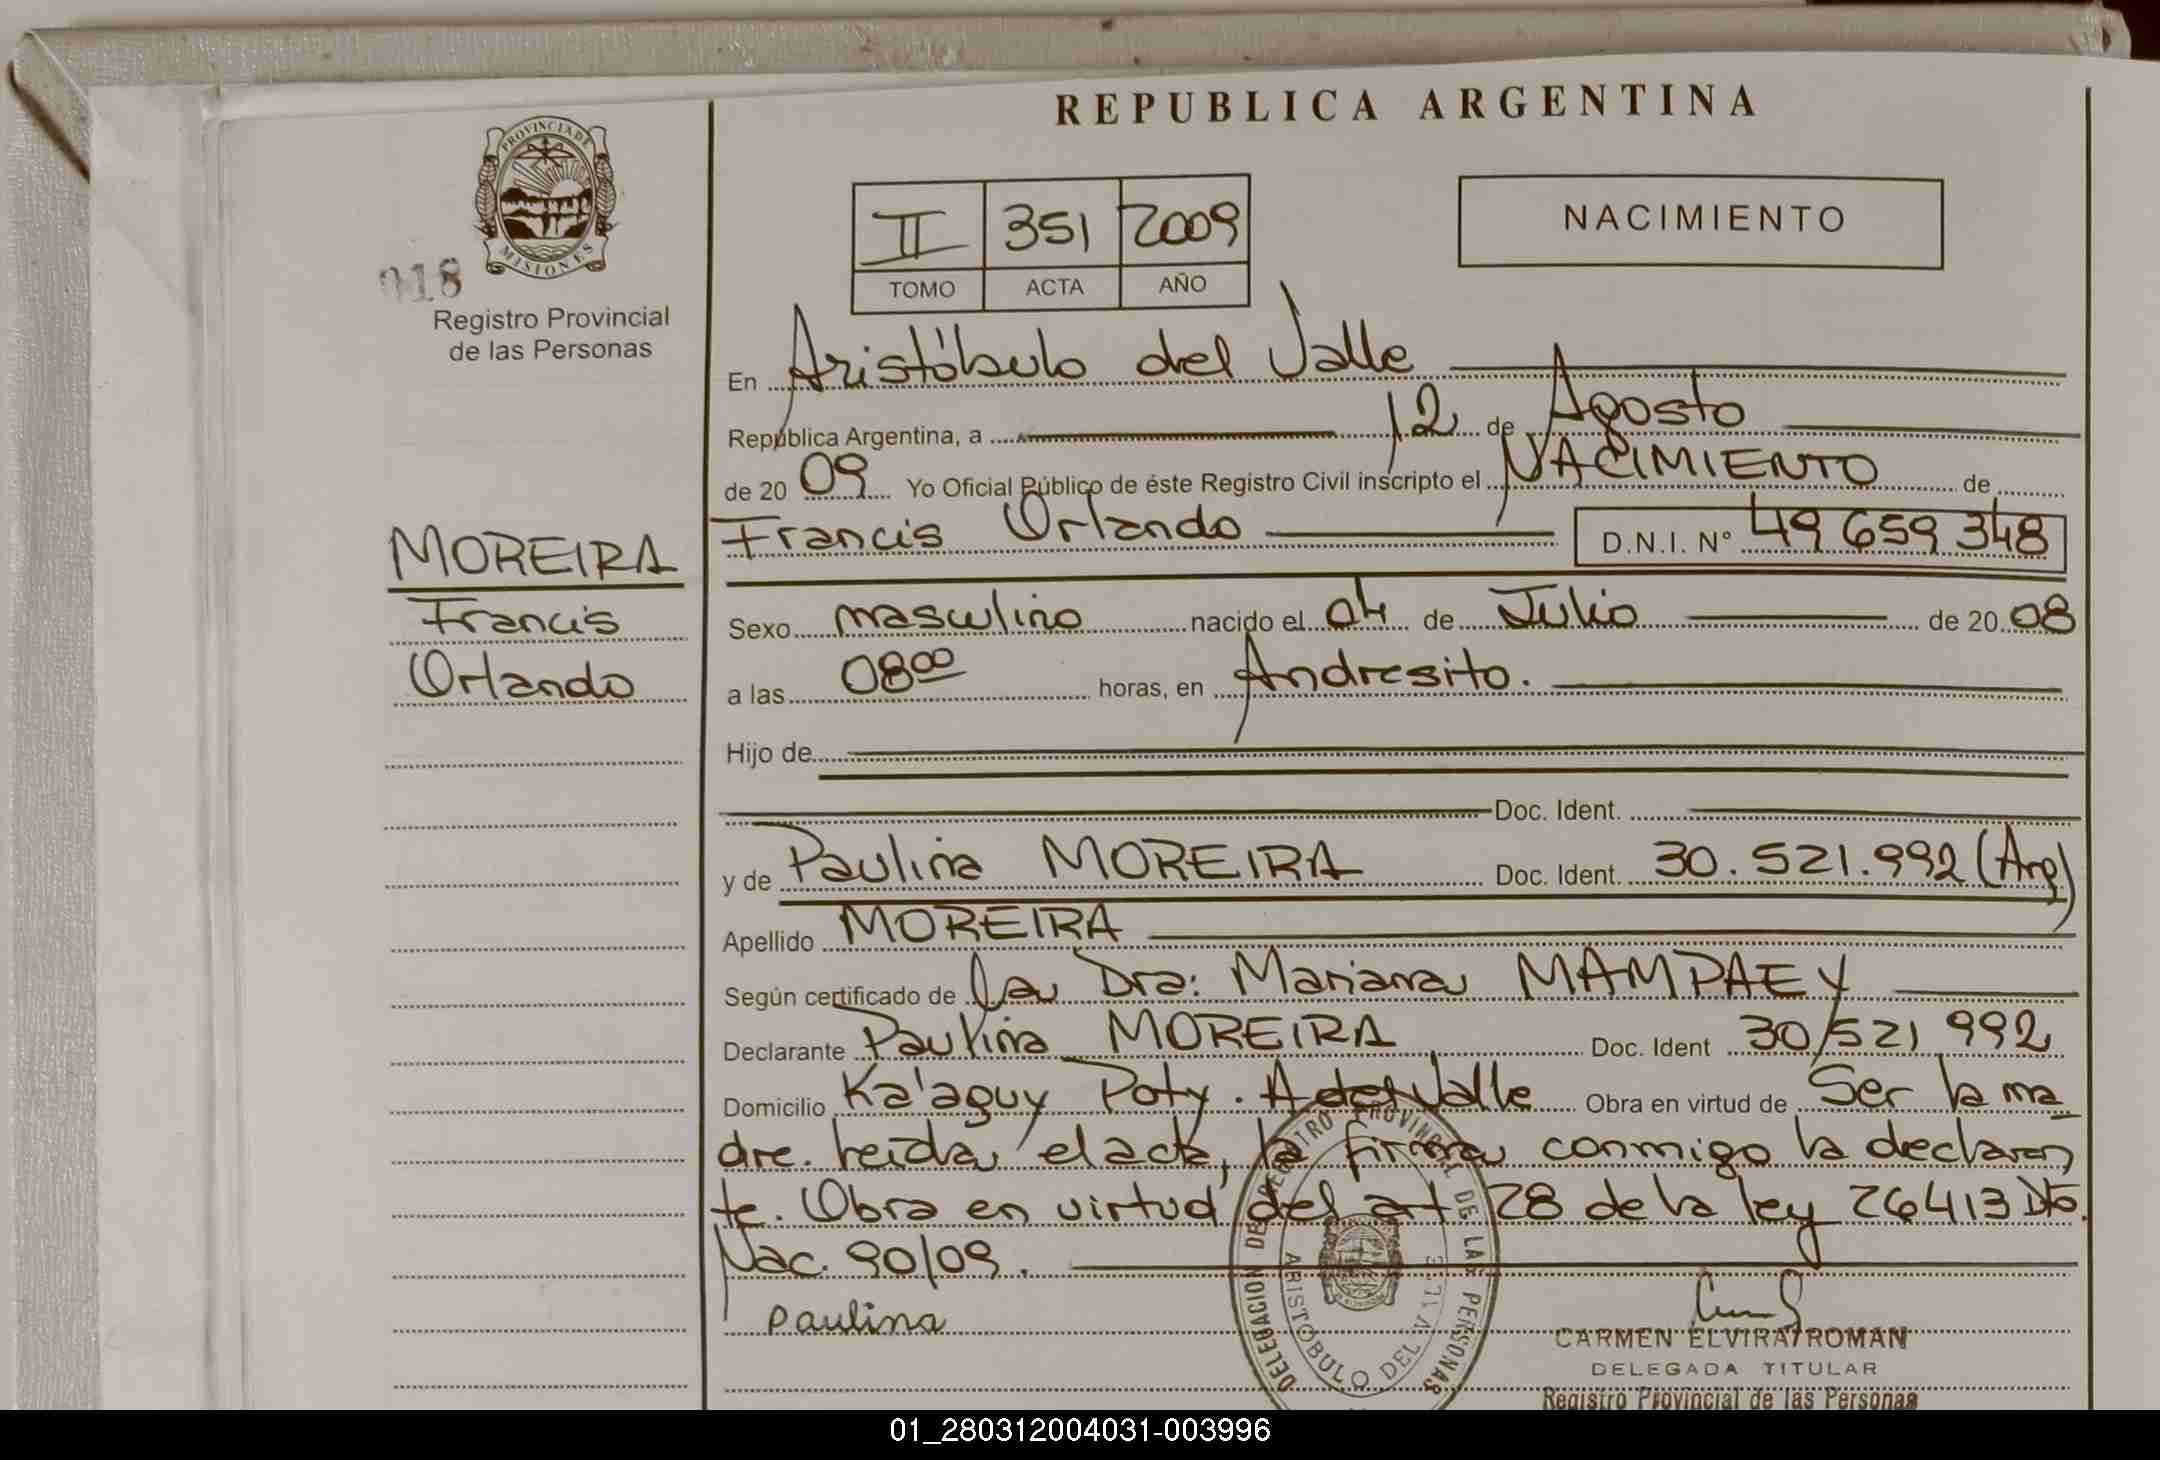 REPUBLICA ARGENTINA
PROVINCIA DE
MISIONES
018
Registro Provincial
de las Personas
II 351 2009
TOMO ACTA AÑO
NACIMIENTO
En Aristóbulo del Valle
República Argentina, a 12 de Agosto
de 2009 Yo Oficial Público de éste Registro Civil inscripto el NACIMIENTO de
Francis Orlando D.N.I. N° 49 659 348
MOREIRA
Francis
Orlando
Sexo masculino nacido el 04 de Julio de 2008
a las 08 00 horas, en Andresito.
Hijo de
Doc. Ident.
y de Paulina MOREIRA Doc. Ident. 30.521.992 (Arg)
Apellido MOREIRA
Según certificado de la Dra: Mariana MAMPAEY
Declarante Paulina MOREIRA Doc. Ident 30/521 992
Domicilio Ka'aguy Poty. A del Valle Obra en virtud de Ser la ma
dre. leida el acta, la firma conmigo la declaran
te. Obra en virtud del art 28 de la ley 26413 Dto.
Nac. 90/09.
Paulina
DELEGACION DEL REGISTRO PROVINCIAL DE LAS PERSONAS
ARISTOBULO DEL VALLE
CARMEN ELVIRA ROMAN
DELEGADA TITULAR
Registro Provincial de las Personas
01_280312004031-003996